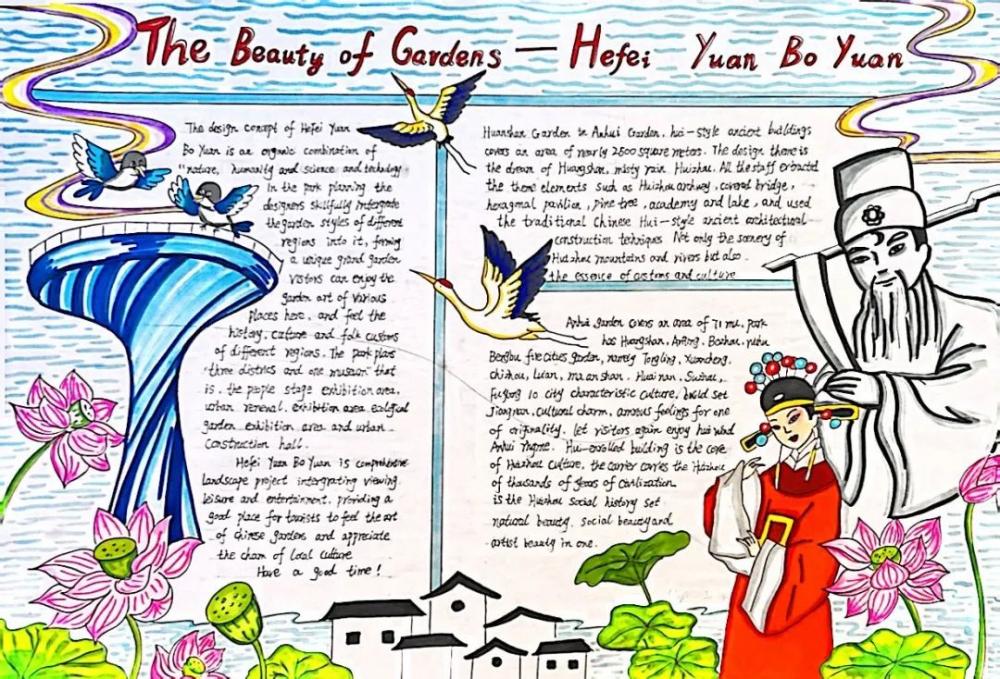 The Beauty of Gardens — Hefei Yuan Bo Yuan
The design concept of Hefei Yuan
Bo Yuan is an organic combination of
"nature, humanity and science and technology
In the park planning the
designers skillfully intergrate
the garden styles of different
regions into it, forming
a unique grand garden
Visitors can enjoy the
garden art of various
places here, and feel the
history, culture and folk customs
of different regions. The park plans
"three districts and one museum" that
is, the people stage exhibition area,
urban renewal exhibition area ecological
garden exhibition area and urban
Construction hall.
Hefei Yuan Bo Yuan is comprehensive
landscape project intergrating viewing
leisure and entertainment, providing a
good place for tourists to feel the art
of chinese gardens and appreciate
the charm of local culture
Have a good time!
Huanshan Garden in Anhui Garden, hui-style ancient buildings
covers an area of nearly 2500 square meters. The design theme is
the dream of Huangshan, misty rain Huizhou. All the staff extracted
the theme elements such as Huizhou archway, covered bridge,
hexagonal pavilion, pine tree, academy and lake, and used
the traditional Chinese Hui-style ancient architectural
construction techniques Not only the scenery of
Huizhou mountains and rivers but also
the essence of customs and culture
Anhui garden covers an area of 71 mu, park
has Huangshan, Anqing, Bozhou,
Bengbu five cities garden, namely Tongling, Xuancheng,
Chizhou, Luan, ma an shan, Huai nan, Suzhou,
Fuyang 10 city characteristic culture, build set
Jiangnan, cultural charm, amorous feelings for one
of originality. let visitors again enjoy hui wind
Anhui Hui-styled building is the core
of Huizhou culture, the carrier carries the Huizhou
of thousands of years of civilization
is the Huizhou social history set
natural beauty, social beauty and
artist beauty in one.